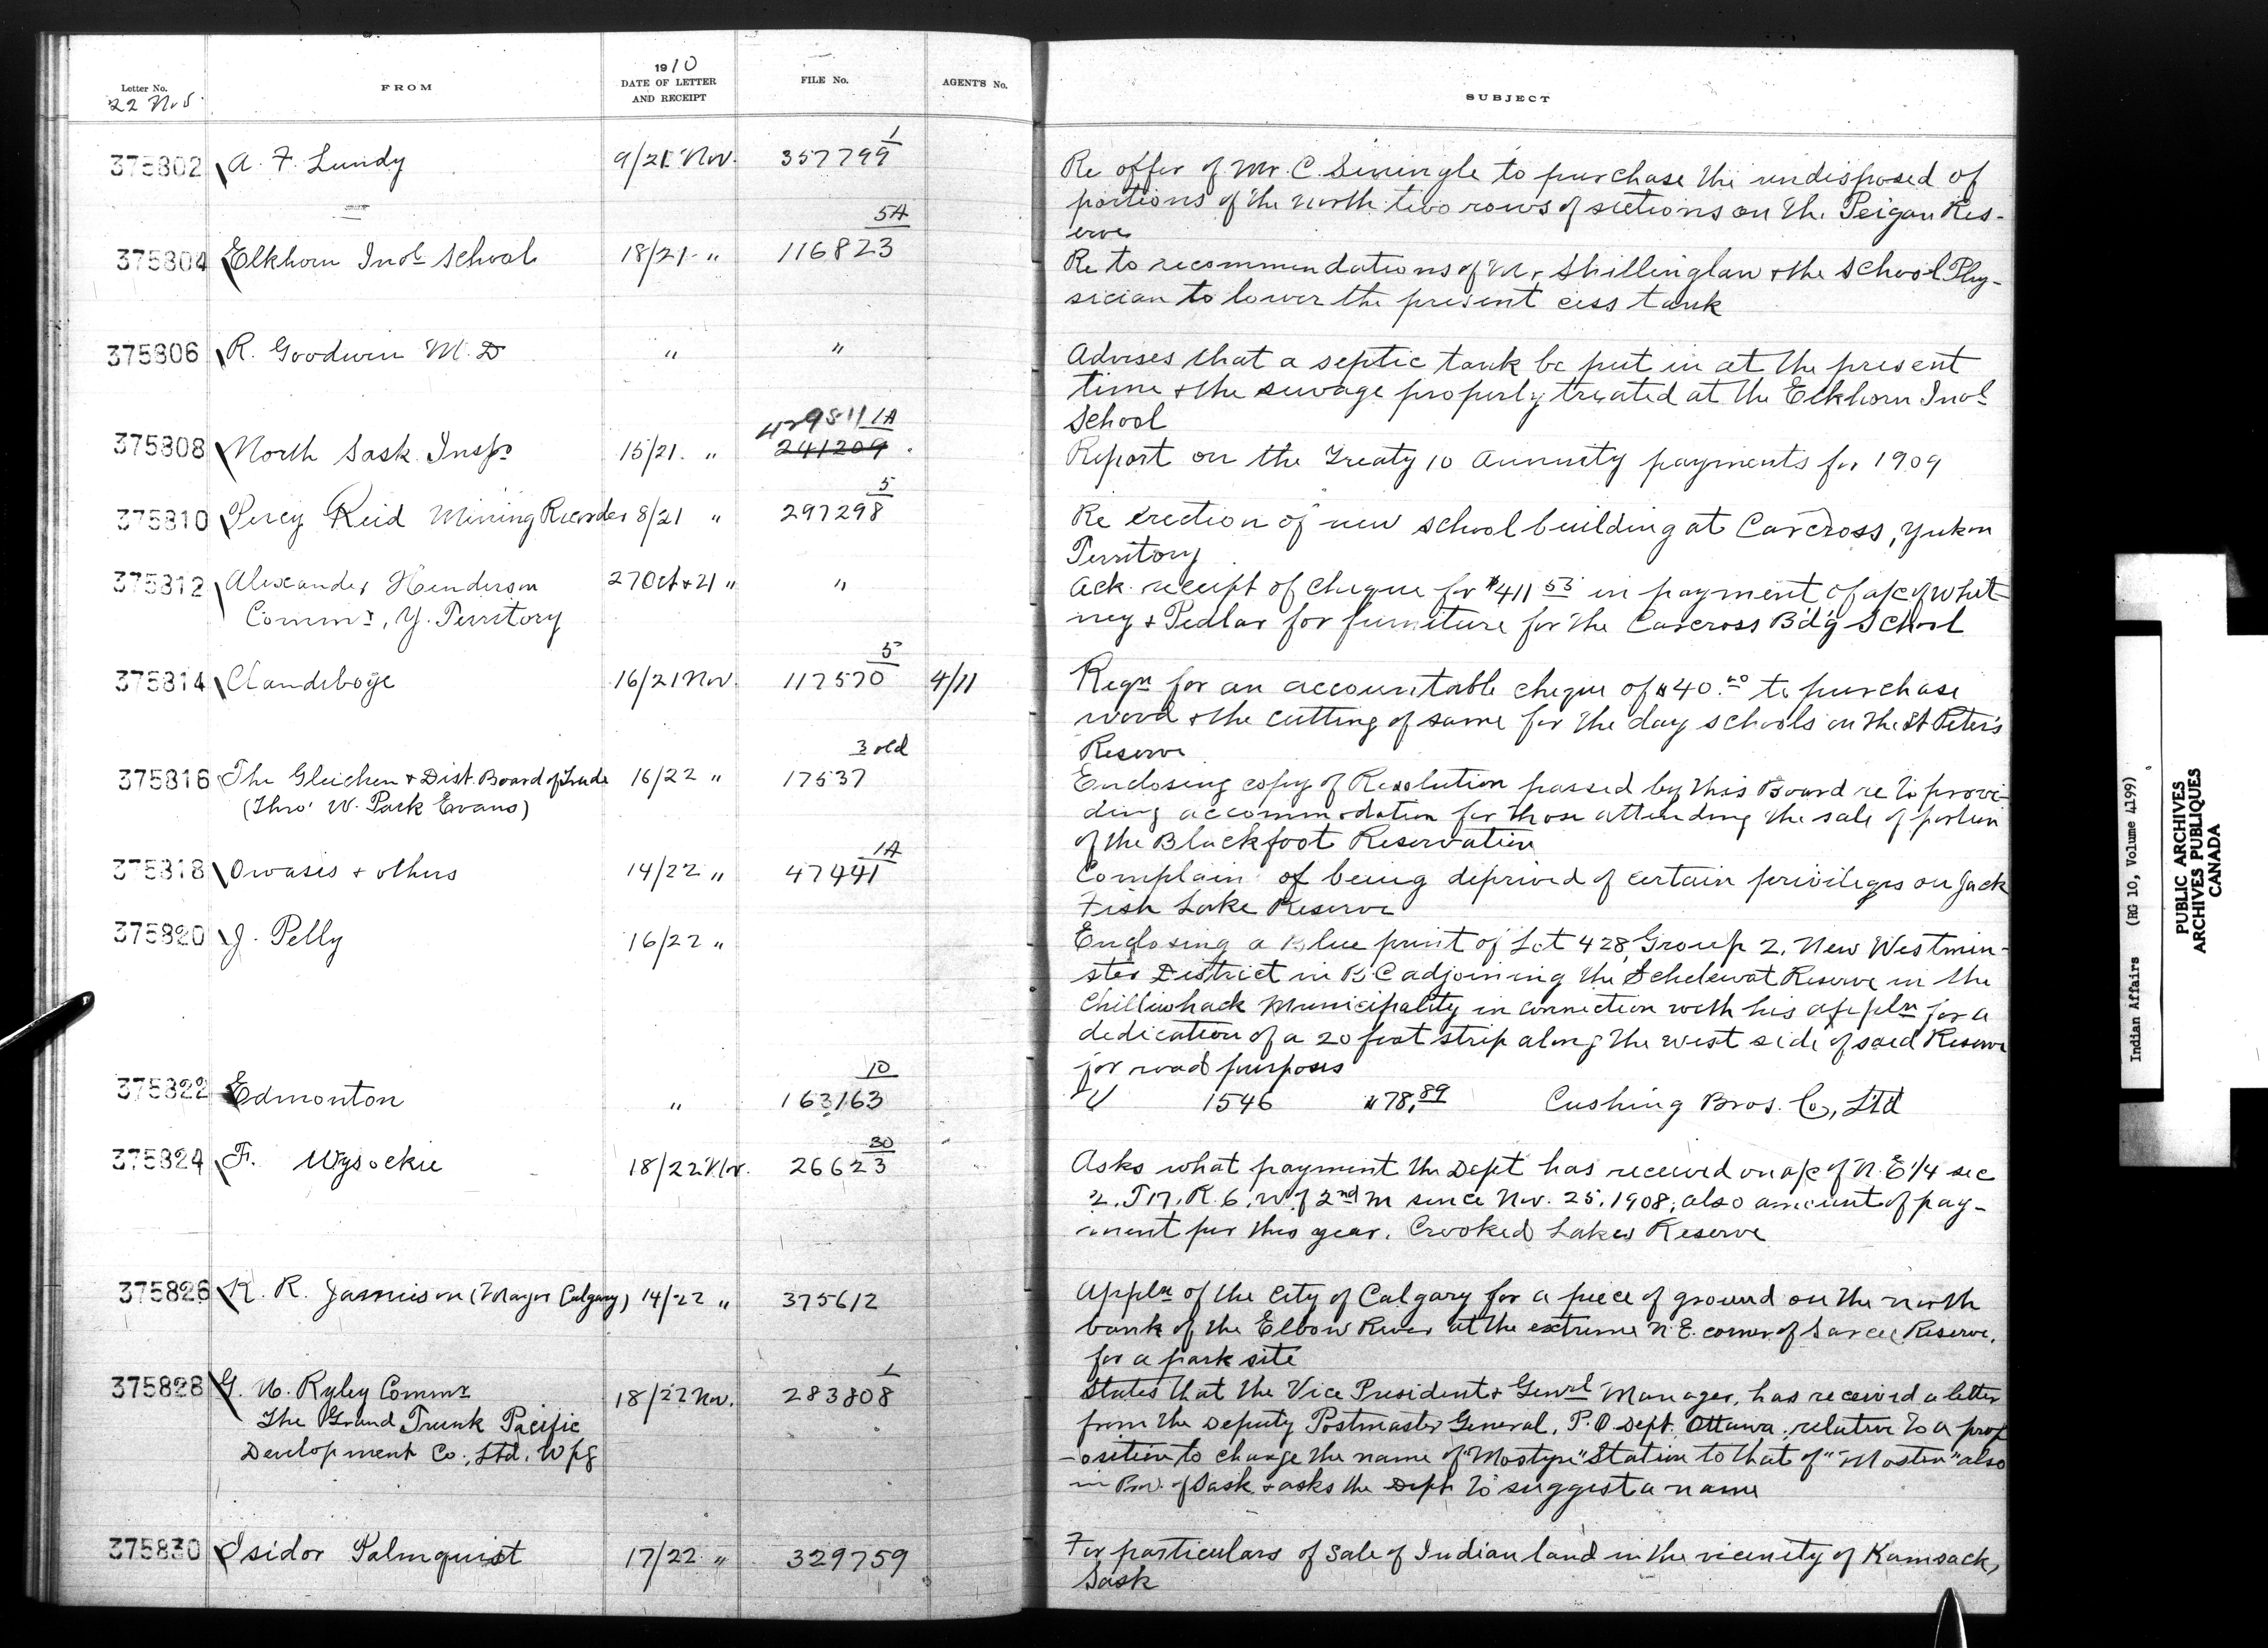 Letter No.
22 Nov
FROM
1910
DATE OF LETTER
AND RECEIPT
FILE No.
AGENT'S No.
SUBJECT
375802 A. F. Lundy 9/21 Nov. 357799 1
Re offer of Mr. C. to purchase the undisposed of
portions of the north two rows of sections on the Peigan Res-
erve
375804 Elkhorn Indl School 18/21 " 116823 5A
Re to recommendations of Mr Shillinglaw & the School Phy-
sician to lower the present cess tank
375806 R. Goodwin M.D " "
Advises that a septic tank be put in at the present
time & the sewage properly treated at the Elkhorn Indl
School
375808 North Sask. Insp. 15/21. " 429811 1A
241209
Report on the Treaty 10 Annuity payments for 1909
375810 Percy Reid Mining Recorder 8/21 " 297298 5
Re erection of new school building at Carcross, Yukon
Territory
375812 Alexander Henderson 27 Oct & 21 " "
Commr, Y. Territory
Ack. receipt of cheque for $411 53 in payment of a/c of Whit-
ney & Pedlar for furniture for the Carcross B'd'g School
375814 Clandeboye 16/21 Nov. 117570 5 4/11
Reqn for an accountable cheque of $40.00 to purchase
wood & the cutting of same for the day schools on the St Peter's
Reserve
375816 The Gleichen & Dist. Board of Trade 16/22 " 17537 3 old
(Thro' W. Park Evans)
Enclosing copy of Resolution passed by this Board re to provi-
ding accommodation for those attending the sale of portion
of the Blackfoot Reservation
375818 Owasis & others 14/22 " 47441 1A
Complain of being deprived of certain privileges on Jack
Fish Lake Reserve
375820 J. Pelly 16/22 "
Enclosing a Blue print of Lot 428, Group 2, New Westmin-
ster District in B.C adjoining the Schelewat Reserve in the
Chilliwhack Municipality in connection with his appln for a
dedication of a 20 foot strip along the west side of said Reserve
for road purposes
375822 Edmonton " 163163 10
V 1546 $78.89 Cushing Bros. Co, Ltd
375824 F. Wysockie 18/22 Nov. 26623 30
Asks what payment the Dept has received on a/c of N.E 1/4 sec
2. T 17. R. 6. W of 2nd m since Nov. 25. 1908; also amount of pay-
ment for this year. Crooked Lakes Reserve
375826 R. R. Jamieson (Mayor Calgary) 14/22 " 375612
Appln of the City of Calgary for a piece of ground on the north
bank of the Elbow River at the extreme N.E. corner of Sarcee Reserve,
for a park site
375828 G. U. Ryley Commr 18/22 Nov. 283808 1
The Grand Trunk Pacific
Development Co., Ltd. Wpg
States that the Vice President & Genrl Manager, has received a letter
from the Deputy Postmaster General, P.O. Dept. Ottawa, relative to a prop
-osition to change the name of "Mostyn" Station to that of "Mosten" also
in Prov. of Sask. & asks the Dept to suggest a name
375830 Isidor Palmquist 17/22 " 329759
For particulars of sale of Indian land in the vicinity of Kamsack,
Sask
Indian Affairs (RG 10, Volume 4199)
PUBLIC ARCHIVES
ARCHIVES PUBLIQUES
CANADA